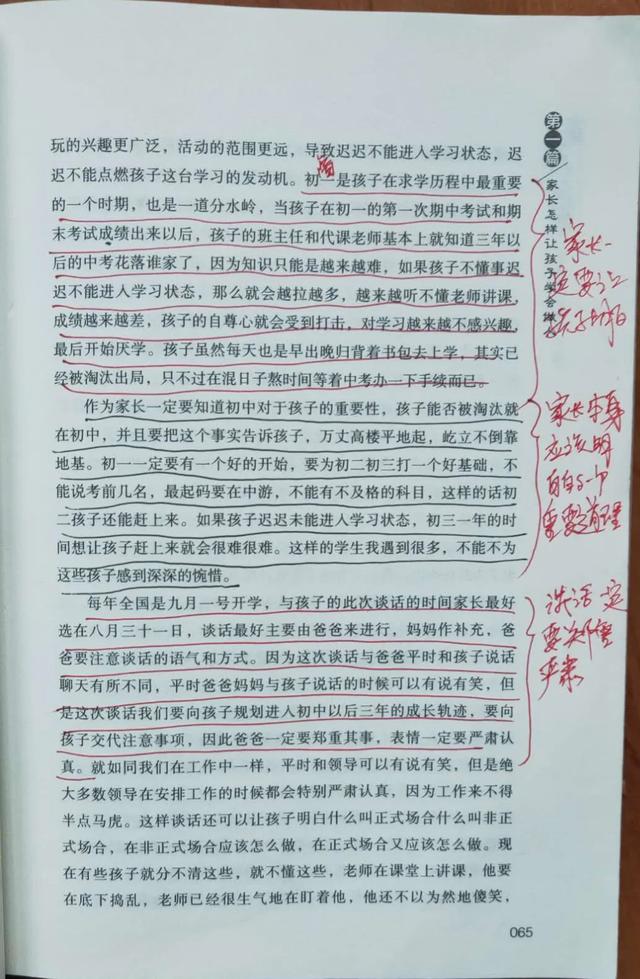 玩的兴趣更广泛，活动的范围更远，导致迟迟不能进入学习状态，迟
迟不能点燃孩子这台学习的发动机。初一是孩子在求学历程中最重要
的一个时期，也是一道分水岭，当孩子在初一的第一次期中考试和期
末考试成绩出来以后，孩子的班主任和代课老师基本上就知道三年以
后的中考花落谁家了，因为知识只能是越来越难，如果孩子不懂事迟
迟不能进入学习状态，那么就会越拉越多，越来越听不懂老师讲课，
成绩越来越差，孩子的自尊心就会受到打击，对学习越来越不感兴趣，
最后开始厌学。孩子虽然每天也是早出晚归背着书包去上学，其实已
经被淘汰出局，只不过在混日子熬时间等着中考办一下手续而已。
作为家长一定要知道初中对于孩子的重要性，孩子能否被淘汰就
在初中，并且要把这个事实告诉孩子，万丈高楼平地起，屹立不倒靠
地基。初一一定要有一个好的开始，要为初二初三打一个好基础，不
能说考前几名，最起码要在中游，不能有不及格的科目，这样的话初
二孩子还能赶上来。如果孩子迟迟未能进入学习状态，初三一年的时
间想让孩子赶上来就会很难很难。这样的学生我遇到很多，不能不为
这些孩子感到深深的惋惜。
每年全国是九月一号开学，与孩子的此次谈话的时间家长最好
选在八月三十一日，谈话最好主要由爸爸来进行，妈妈作补充，爸
爸要注意谈话的语气和方式。因为这次谈话与爸爸平时和孩子说话
聊天有所不同，平时爸爸妈妈与孩子说话的时候可以有说有笑，但
是这次谈话我们要向孩子规划进入初中以后三年的成长轨迹，要向
孩子交代注意事项，因此爸爸一定要郑重其事，表情一定要严肃认
真。就如同我们在工作中一样，平时和领导可以有说有笑，但是绝
大多数领导在安排工作的时候都会特别严肃认真，因为工作来不得
半点马虎。这样谈话还可以让孩子明白什么叫正式场合什么叫非正
式场合，在非正式场合应该怎么做，在正式场合又应该怎么做。现
在有些孩子就分不清这些，就不懂这些，老师在课堂上讲课，他要
在底下捣乱，老师已经很生气地在盯着他，他还不以为然地傻笑，
第一篇
家长怎样让孩子学会做
家长一
定要让
孩子明白
家长本身
应该明
白这个
重要道理
谈话一定
要郑重
严肃
065